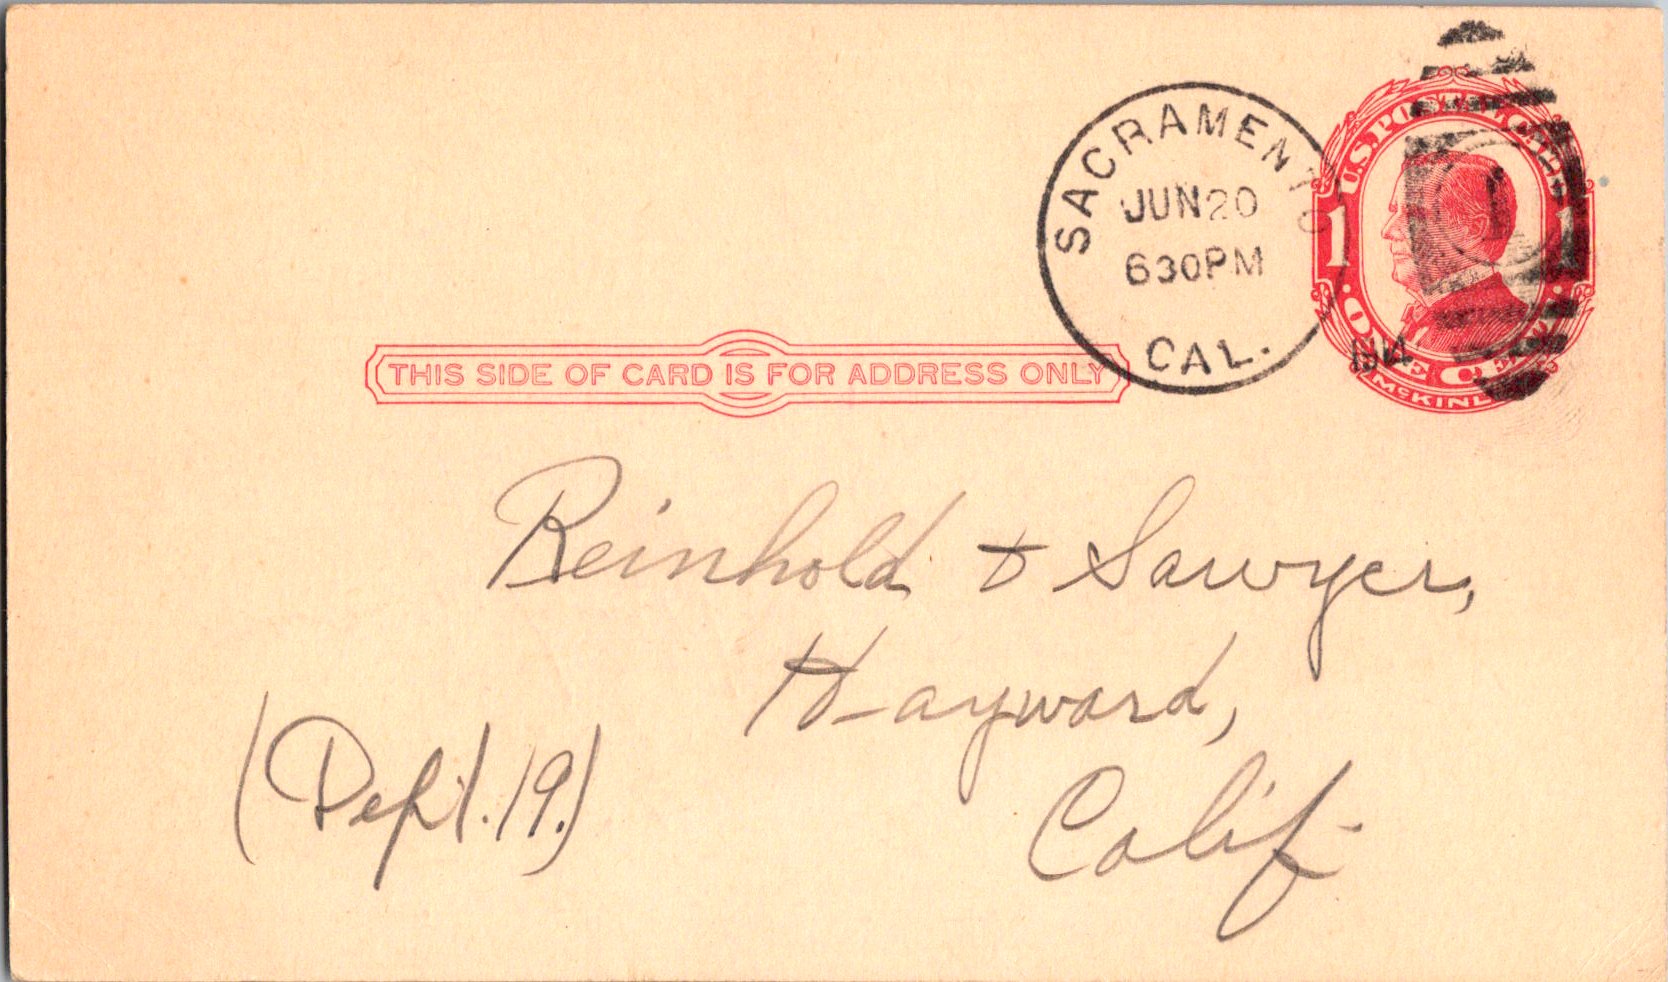 SACRAMENTO
JUN 20
6 30 PM
CAL.
1914
U.S. POSTAL CARD
1 1
ONE CENT
McKINLEY
THIS SIDE OF CARD IS FOR ADDRESS ONLY
Reinhold & Sawyer,
Hayward,
(Dept. 19.)
Calif.